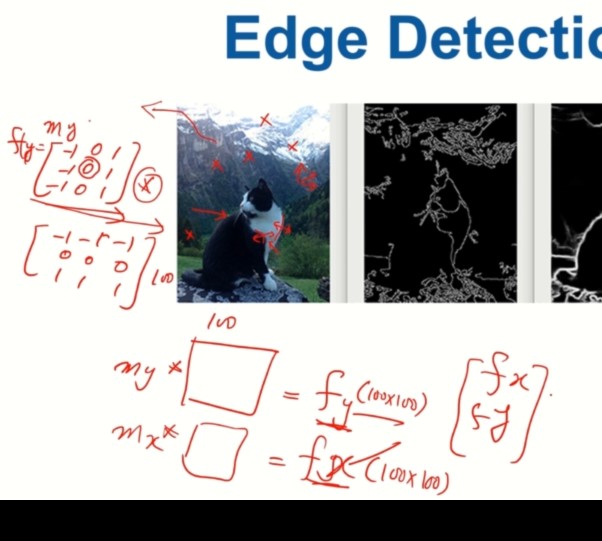 Edge Detectio
my
fy = [-1 0 1
-1 0 1
-1 0 1] *
[-1 -1 -1
0 0 0
1 1 1] 100
100
my * = fy (100x100)
mx * = fx (100x100)
[fx
fy]